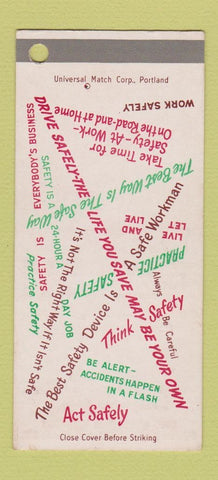 Universal Match Corp., Portland
WORK SAFELY
Take Time for
Safety-At Work-
On the Road-and at Home
DRIVE SAFELY-THE LIFE YOU SAVE MAY BE YOUR OWN
EVERYBODY'S BUSINESS
SAFETY IS
The Best Way Is The Safe Way
SAFETY IS A
24-HOUR A
DAY JOB
Practice Safety
It's Not The Right Way If It Isn't Safe
The Best Safety Device Is A Safe Workman
LIVE AND
LET LIVE
PRACTICE
SAFETY
Always
Be Careful
Think Safety
BE ALERT-
ACCIDENTS HAPPEN
IN A FLASH
Act Safely
Close Cover Before Striking